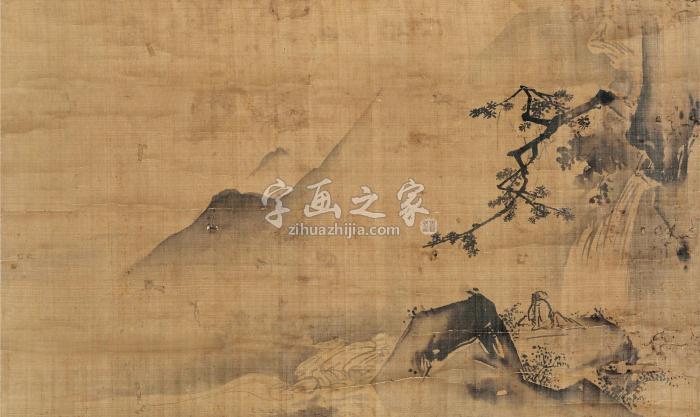 字画之家
zihuazhijia.com